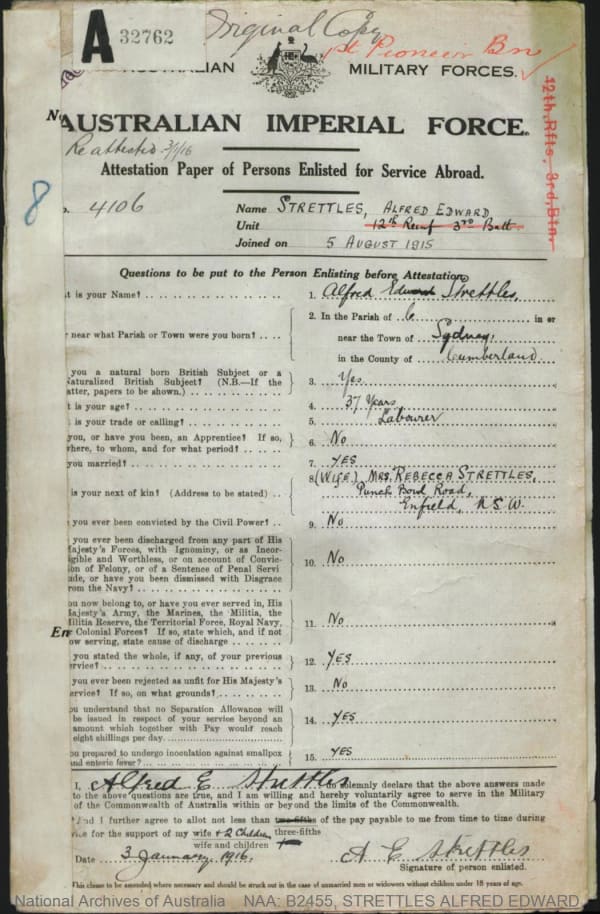 A 32762
Original Copy
1st Pioneer Bn
AUSTRALIAN MILITARY FORCES.
AUSTRALIAN IMPERIAL FORCE.
Re attested 3/1/16
Attestation Paper of Persons Enlisted for Service Abroad.
8
4106
Name STRETTLES, ALFRED EDWARD
Unit 12th Reinf 3rd Batt.
Joined on 5 AUGUST 1915
12th Rfts, 3rd Btn.
Questions to be put to the Person Enlisting before Attestation.
t is your Name? 1. Alfred Edward Strettles
near what Parish or Town were you born? 2. In the Parish of in or
near the Town of Sydney
in the County of Cumberland
you a natural born British Subject or a
Naturalized British Subject? (N.B.—If the
latter, papers to be shown.) 3. Yes
t is your age? 4. 37 Years
is your trade or calling? 5. Labourer
you, or have you been, an Apprentice? If so,
where, to whom, and for what period? 6. No
you married? 7. YES
is your next of kin? (Address to be stated) 8. (WIFE) MRS. REBECCA STRETTLES,
Punch Bowl Road,
Enfield, N.S.W.
you ever been convicted by the Civil Power? 9. No
you ever been discharged from any part of His
Majesty's Forces, with Ignominy, or as Incor-
rigible and Worthless, or on account of Convic-
ion of Felony, or of a Sentence of Penal Servi
ude, or have you been dismissed with Disgrace
from the Navy? 10. No
ou now belong to, or have you ever served in, His
Majesty's Army, the Marines, the Militia, the
Militia Reserve, the Territorial Force, Royal Navy,
Colonial Forces? If so, state which, and if not
now serving, state cause of discharge 11. No
you stated the whole, if any, of your previous
service? 12. YES
you ever been rejected as unfit for His Majesty's
service? If so, on what grounds? 13. No
ou understand that no Separation Allowance will
be issued in respect of your service beyond an
amount which together with Pay would reach
eight shillings per day. 14. YES
ou prepared to undergo inoculation against smallpox
and enteric fever? 15. YES
I, Alfred E Strettles do solemnly declare that the above answers made
to the above questions are true, and I am willing and hereby voluntarily agree to serve in the Military
of the Commonwealth of Australia within or beyond the limits of the Commonwealth.
*And I further agree to allot not less than two-fifths of the pay payable to me from time to time during
vice for the support of my wife + 2 Children three-fifths
wife and children
Date 3 January 1916. A E Strettles
Signature of person enlisted.
This clause to be amended where necessary and should be struck out in the case of unmarried men or widowers without children under 18 years of age.
National Archives of Australia NAA: B2455, STRETTLES ALFRED EDWARD